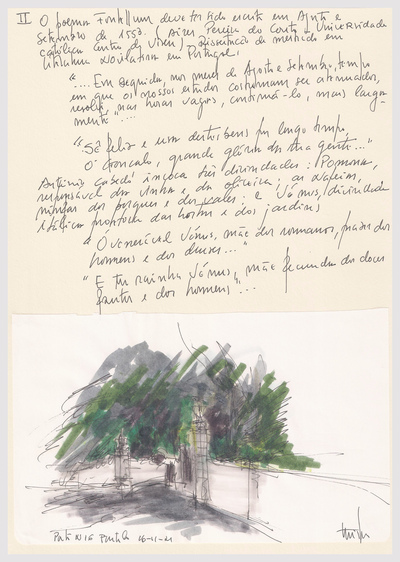 II O poema Fontellum deve ter sido escrito em Agosto e
Setembro de 1553. (Aires Pereira do Couto, Universidade
Católica, Centro de Viseu), Dissertação de mestrado em
Literatura Novilatina em Portugal.
"....Em seguida, nos meses de Agosto e Setembro, tempo
em que os nossos estudos costumam ser atenuados,
resolvi, nas horas vagas, continuá-lo, mais larga-
mente"....
"Sê feliz e usa destes bens por longo tempo,
ó Gonçalo, grande glória da tua gente..."
António Cabedo invoca três divindades: Pomona,
responsável da vinha e da oliveira; as Napeias,
ninfas dos bosques e dos vales; e Vénus, divindade
itálica protectora das hortas e dos jardins;
"Ó venerável Vénus, mãe dos romanos, prazer dos
homens e dos deuses..."
"E tu rainha Vénus, mãe fecunda dos doces
frutos e dos homens"...